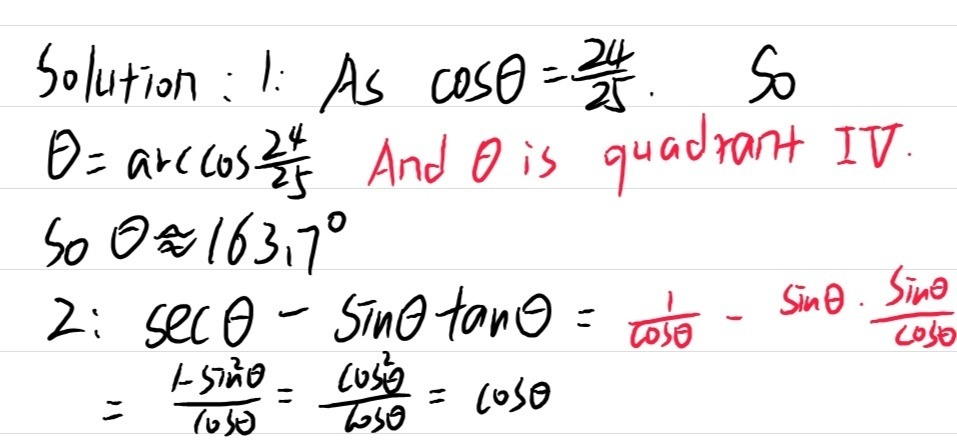 Solution : 1: As cosθ = 24/25. So
θ = arccos 24/25 And θ is quadrant IV.
So θ ≈ 163.7°
2: secθ - sinθ tanθ = 1/cosθ - sinθ · sinθ/cosθ
= 1-sin²θ/cosθ = cos²θ/cosθ = cosθ